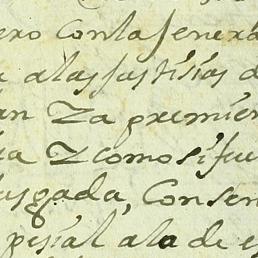 ero con la general
a a las justisias d
an Za premien
ia Z como si fue
usgada, Consen
pesial a la de e